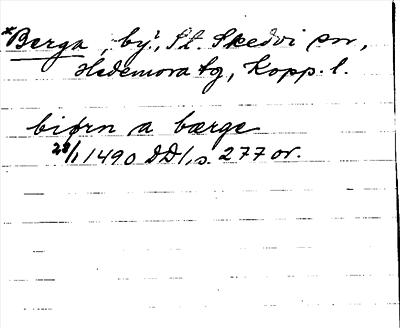 *Berga, by, St. Skedvi sn,
Hedemora tg, Kopp. l.
biørn a bærge
28/1 1490 DD1, s. 277 or.